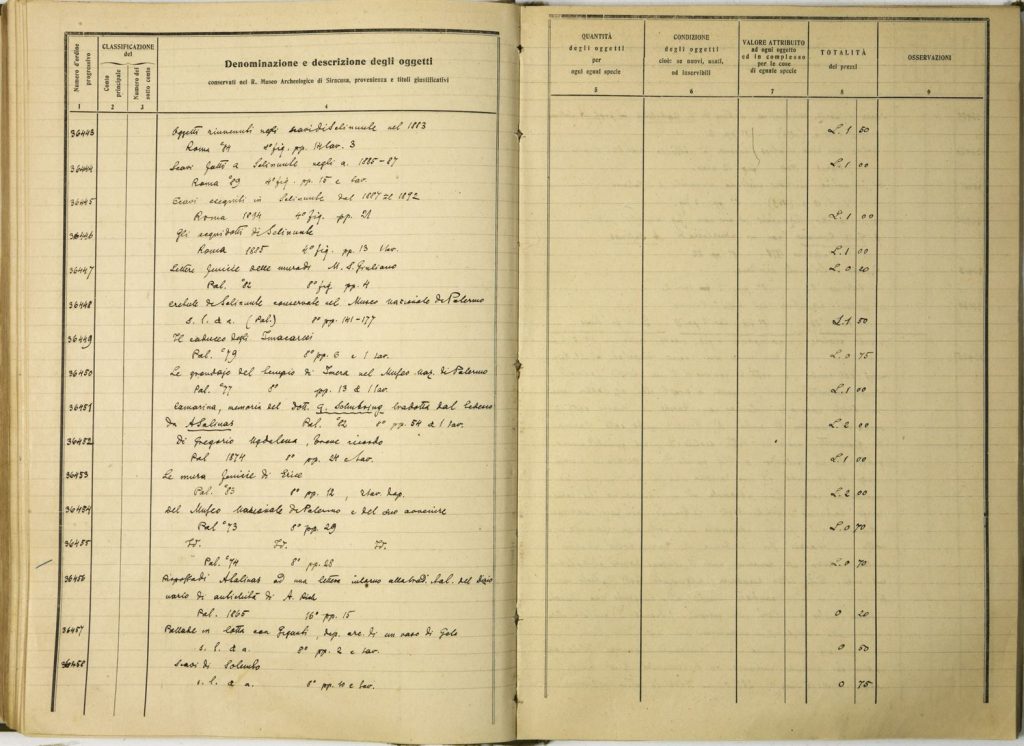 Numero d'ordine progressivo
CLASSIFICAZIONE del
Conto principale
Numero del sotto conto
Denominazione e descrizione degli oggetti
conservati nel R. Museo Archeologico di Siracusa, provenienza e titoli giustificativi
1 2 3 4
QUANTITÀ degli oggetti per ogni egual specie
CONDIZIONE degli oggetti cioè: se nuovi, usati, od inservibili
VALORE ATTRIBUITO ad ogni oggetto ed in complesso per le cose di eguale specie
TOTALITÀ dei prezzi
OSSERVAZIONI
5 6 7 8 9
36443 Oggetti rinvenuti negli scavi di Selinunte nel 1883 L. 1 50
Roma '84 4° fig. pp. 14 tav. 3
36444 Scavi fatti a Selinunte negli a. 1885-87 L. 1 00
Roma '89 4° fig. pp. 15 e tav.
36445 Scavi eseguiti in Selinunte dal 1887 al 1892
Roma 1894 4° fig. pp. 21 L. 1 00
36446 Gli acquidotti di Selinunte
Roma 1885 4° fig. pp. 13 1 tav. L. 1 00
36447 Lettere fenicie delle mura di M. S. Giuliano L. 0 20
Pal. '82 8° fig. pp. 4
36448 cretule di Selinunte conservate nel Museo nazionale di Palermo
s. l. & a. (Pal.) 8° pp. 141-177 L. 1 50
36449 Il caduceo degli Imacaresi
Pal. '79 8° pp. 6 e 1 tav. L. 0 75
36450 Le grondaje del tempio di Imera nel Museo naz. di Palermo
Pal. '77 8° pp. 13 & 1 tav. L. 1 00
36451 Camarina, memoria del dott. G. Schubring tradotta dal tedesco
da A Salinas Pal. '82 8° pp. 54 & 1 tav. L. 2 00
36452 Di Gregorio Ugdulena, breve ricordo
Pal 1874 8° pp. 24 e tav. L. 1 00
36453 Le mura fenicie di Erice
Pal. '83 8° pp. 12, 2 tav. dop. L. 2 00
36454 Del Museo nazionale di Palermo e del suo avvenire
Pal '73 8° pp. 29 L. 0 70
36455 Id. Id. Id.
Pal. '74 8° pp. 28 L. 0 70
36456 Risposta di A Salinas ad una lettera intorno alla trad. ital. del dizio
nario di antichità di A. Rich
Pal. 1865 16° pp. 15 0 20
36457 Pallade in lotta con Giganti, dep. are. di un vaso di Gela
s. l. & a. 8° pp. 2 e tav. 0 50
36458 Scavi di Solunto
s. l. & a. 8° pp. 10 e tav. 0 75